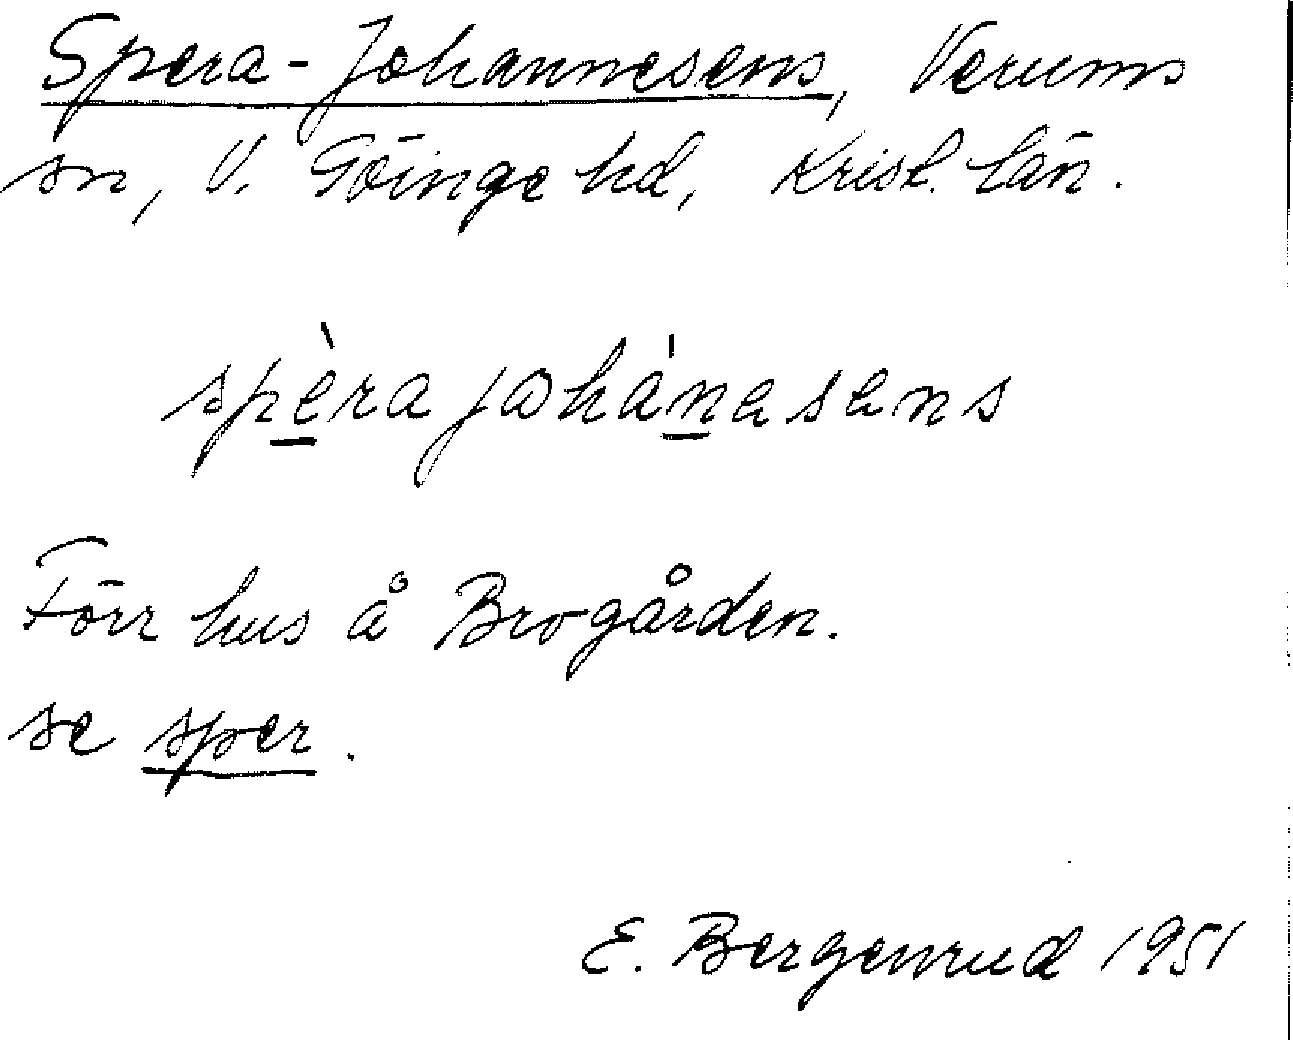 Spera-Johannesens, Verums
sn, V. Göinge hd, Krist. län.
spèrajohánasens
Förr hus å Brogården.
se sper.
E. Bergenrud 1951